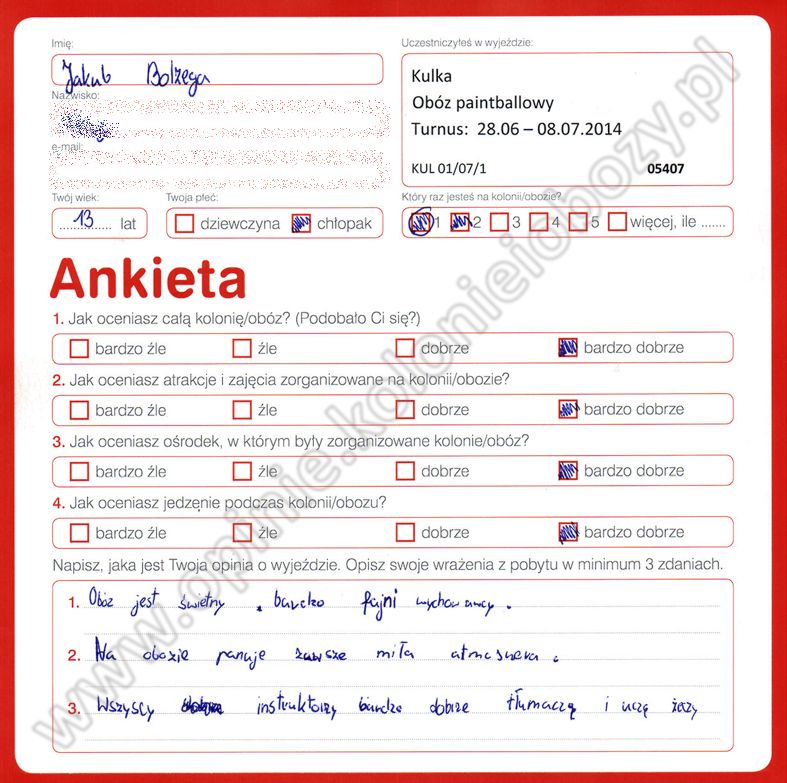 Imię:
Uczestniczyłeś w wyjeździe:
Jakub Bolzega
Kulka
Obóz paintballowy
Turnus: 28.06 – 08.07.2014
KUL 01/07/1 05407
Nazwisko:
e-mail:
Twój wiek: Twoja płeć: Który raz jesteś na kolonii/obozie?
13 lat dziewczyna chłopak 1 2 3 4 5 więcej, ile .......
Ankieta
1. Jak oceniasz całą kolonię/obóz? (Podobało Ci się?)
bardzo źle źle dobrze bardzo dobrze
2. Jak oceniasz atrakcje i zajęcia zorganizowane na kolonii/obozie?
bardzo źle źle dobrze bardzo dobrze
3. Jak oceniasz ośrodek, w którym były zorganizowane kolonie/obóz?
bardzo źle źle dobrze bardzo dobrze
4. Jak oceniasz jedzenie podczas kolonii/obozu?
bardzo źle źle dobrze bardzo dobrze
Napisz, jaka jest Twoja opinia o wyjeździe. Opisz swoje wrażenia z pobytu w minimum 3 zdaniach.
1. Obóz jest świetny, bardzo fajni wychowawcy.
2. Na obozie panuje zawsze miła atmosfera.
3. Wszyscy instruktorzy bardzo dobrze tłumaczą i uczą
www.opinie.kolonieiobozy.pl